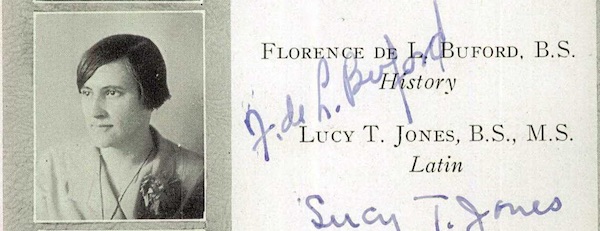 FLORENCE DE L. BUFORD, B.S.
History
F. de L. Buford
LUCY T. JONES, B.S., M.S.
Latin
Lucy T. Jones